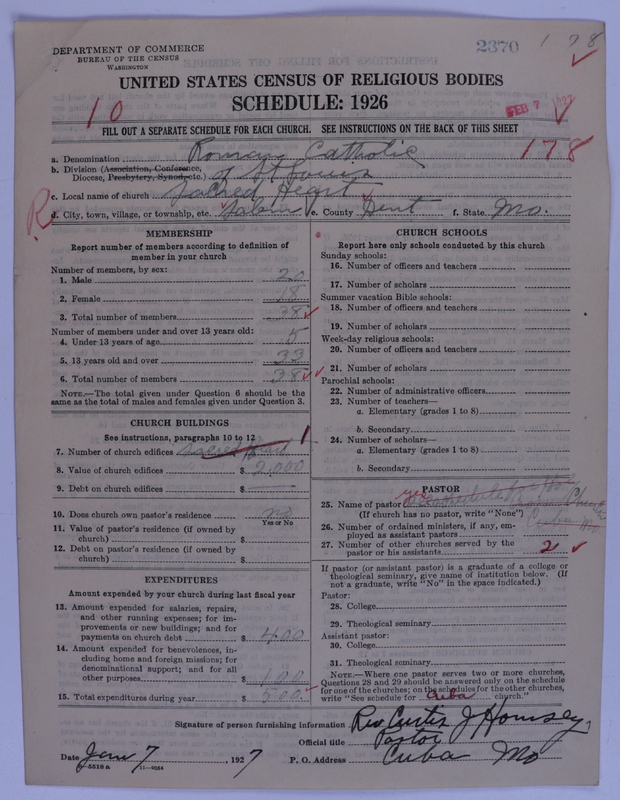 DEPARTMENT OF COMMERCE
BUREAU OF THE CENSUS
WASHINGTON
2370 178
UNITED STATES CENSUS OF RELIGIOUS BODIES
SCHEDULE: 1926
10
FEB 7 1927
FILL OUT A SEPARATE SCHEDULE FOR EACH CHURCH. SEE INSTRUCTIONS ON THE BACK OF THIS SHEET
a. Denomination Roman Catholic 178
b. Division (Association, Conference, Diocese, Presbytery, Synod, etc.) of St Louis
c. Local name of church Sacred Heart
R
d. City, town, village, or township, etc. e. County Dent f. State Mo.
MEMBERSHIP
Report number of members according to definition of
member in your church
Number of members, by sex:
1. Male 20
2. Female 18
3. Total number of members 38
Number of members under and over 13 years old:
4. Under 13 years of age 5
5. 13 years old and over 33
6. Total number of members 38
NOTE.—The total given under Question 6 should be
same as the total of males and females given under Question 3.
CHURCH BUILDINGS
See instructions, paragraphs 10 to 12
7. Number of church edifices Sacred Heart 1
8. Value of church edifices $ 2,000
9. Debt on church edifices $ —
10. Does church own pastor's residence no
Yes or No
11. Value of pastor's residence (if owned by
church) $
12. Debt on pastor's residence (if owned by
church) $
EXPENDITURES
Amount expended by your church during last fiscal year
13. Amount expended for salaries, repairs,
and other running expenses; for im-
provements or new buildings; and for
payments on church debt $ 400
14. Amount expended for benevolences, in-
cluding home and foreign missions; for
denominational support; and for all
other purposes $ 100
15. Total expenditures during year $ 500
CHURCH SCHOOLS
Report here only schools conducted by this church
Sunday schools:
16. Number of officers and teachers
17. Number of scholars
Summer vacation Bible schools:
18. Number of officers and teachers
19. Number of scholars
Week-day religious schools:
20. Number of officers and teachers
21. Number of scholars
Parochial schools:
22. Number of administrative officers
23. Number of teachers—
a. Elementary (grades 1 to 8)
b. Secondary
24. Number of scholars—
a. Elementary (grades 1 to 8)
b. Secondary
PASTOR
yes
25. Name of pastor
(If church has no pastor, write "None") Cuba Mo
26. Number of ordained ministers, if any, em-
ployed as assistant pastors
27. Number of other churches served by the
pastor or his assistants 2
If pastor (or assistant pastor) is a graduate of a college or
theological seminary, give name of institution below. (If
not a graduate, write "No" in the space indicated.)
Pastor:
28. College
29. Theological seminary
Assistant pastor:
30. College
31. Theological seminary
NOTE.—Where one pastor serves two or more churches,
Questions 28 and 29 should be answered only on the schedule
for one of the churches; on the schedules for the other churches,
write "See schedule for Cuba church."
Signature of person furnishing information Rev Curtis J Hornsey
Official title Pastor
Date Jan 7, 1927 P. O. Address Cuba Mo
8-5518 a 11-9264